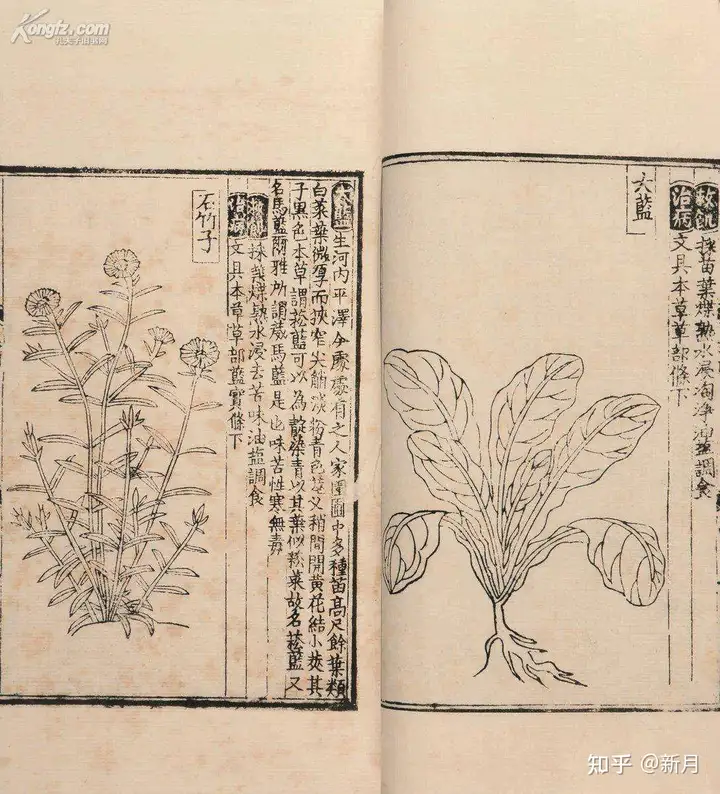 救飢 採苗葉煠熟水浸淘淨油鹽調食
治病 文具本草草部條下
大藍
大藍 生河內平澤今處處有之人家園圃中多種苗高尺餘葉類
白菜葉微厚而狹窄尖筋淡粉青色莖叉稍間開黃花結小莢其
子黑色本草謂菘藍可以為靛染青以其葉似菘菜故名菘藍又
名馬藍爾雅所謂葴馬藍是也味苦性寒無毒
救飢 採葉煠熟水浸去苦味油鹽調食
治病 文具本草草部藍實條下
石竹子
Kongfz.com
孔夫子旧书网
知乎 @新月